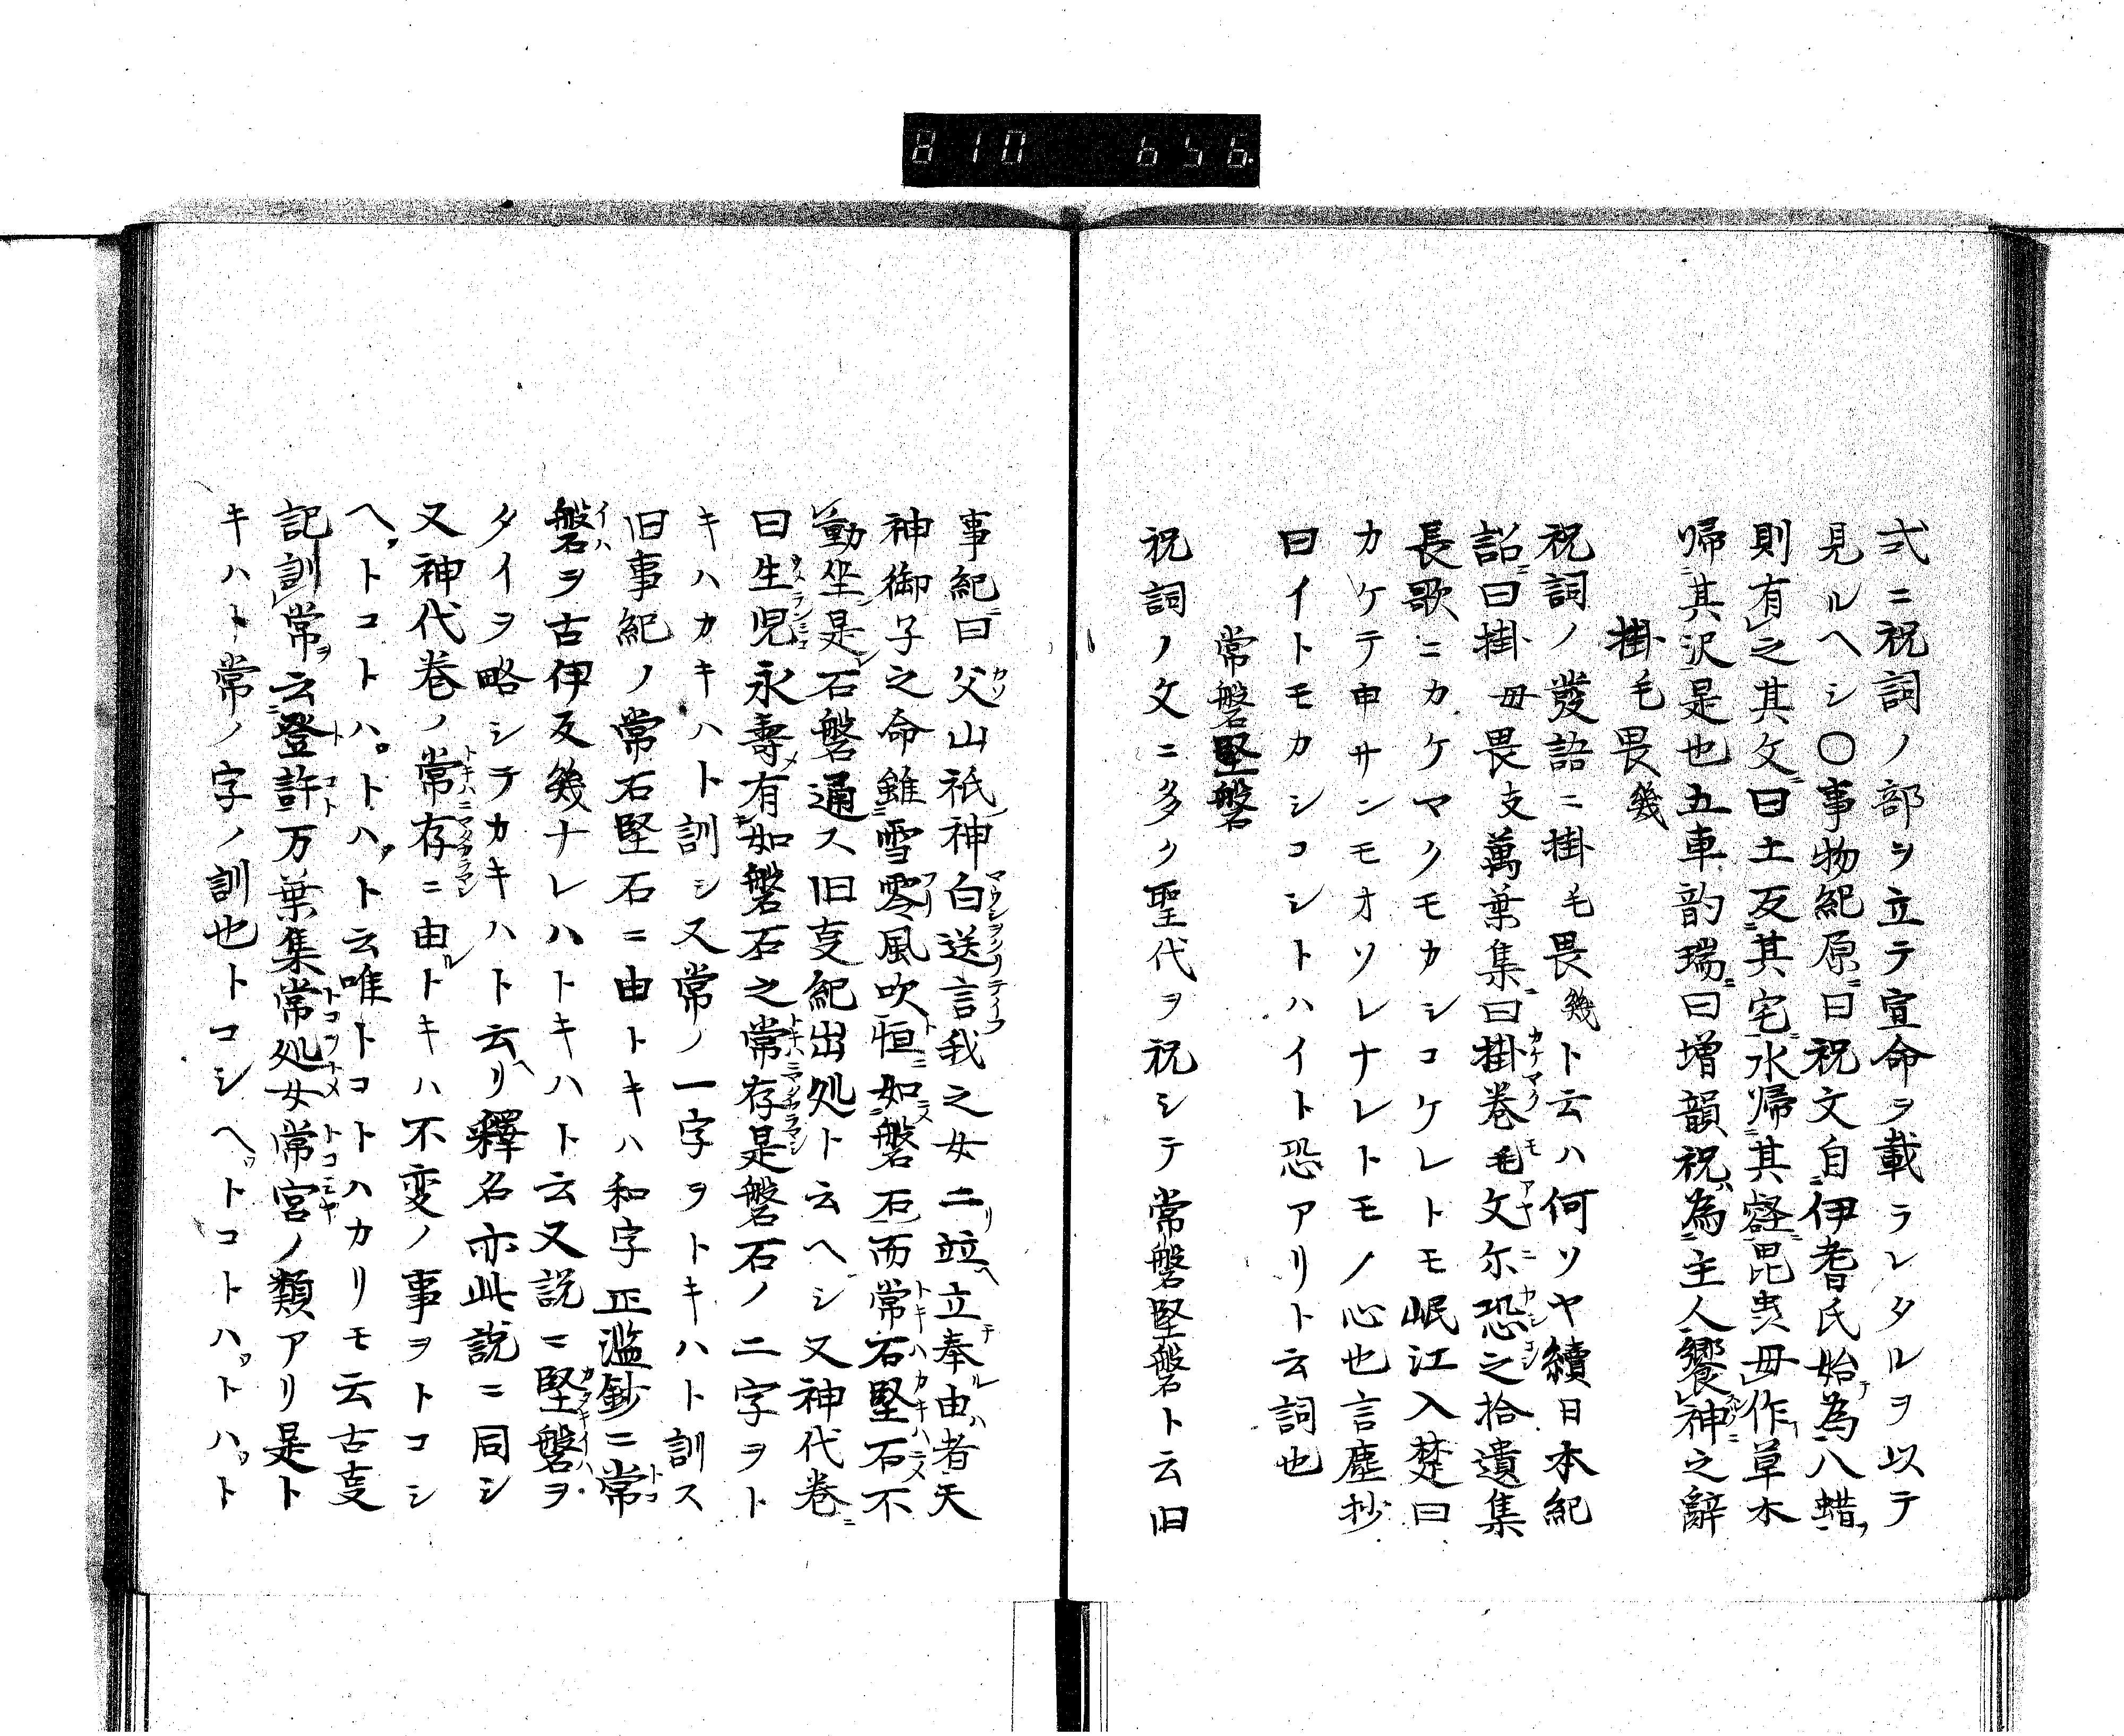 810 656
弍ニ祝詞ノ部ヲ立テ宣命ヲ載ラレタルヲ以テ
見ルヘシ〇事物紀原曰祝文自伊耆氏始為八蜡
則有之其文曰土反其宅水帰其壑昆虫毋作草木
帰其沢是也五車韵瑞曰増韻祝為主人饗神之辭
掛毛畏幾
祝詞ノ發語ニ掛毛畏幾ト云ハ何ソヤ續日本紀
詔曰掛毋畏支萬葉集曰掛巻毛文尓恐之拾遺集
長歌ニカケマクモカシコケレトモ岷江入楚曰
カケテ申サンモオソレナレトモノ心也言塵抄
曰イトモカシコシトハイト恐アリト云詞也
常磐堅磐
祝詞ノ文ニ多ク聖代ヲ祝シテ常磐堅磐ト云旧
事紀曰父山祇神白送言我之女二竝立奉由者天
神御子之命雖雪零風吹恒如磐石而常石堅石不
動坐是石磐通ス旧㕝紀出処ト云ヘシ又神代巻
曰生児永壽有如磐石之常存是磐石ノ二字ヲト
キハカキハト訓シ又常ノ一字ヲトキハト訓ス
旧事紀ノ常石堅石ニ由トキハ和字正濫鈔ニ常
磐ヲ古伊反幾ナレハトキハト云又説ニ堅磐ヲ
タイヲ略シテカキハト云リ釋名亦此説ニ同シ
又神代巻ノ常存ニ由トキハ不変ノ事ヲトコシ
ヘトコトハトハト云唯トコトハカリモ云古㕝
記訓常云登許万葉集常処女常宮ノ類アリ是ト
キハト常ノ字ノ訓也トコシヘトコトハトハト